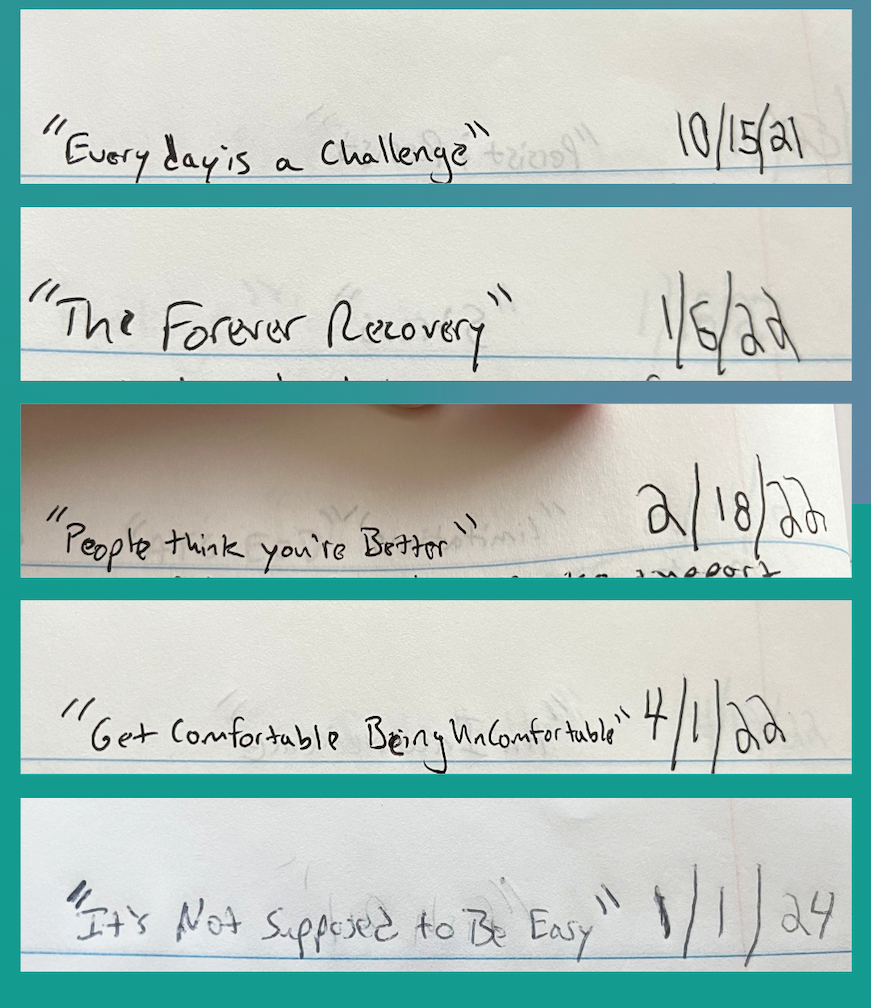 "Every day is a Challenge" 10/15/21
"The Forever Recovery" 1/6/22
"People think you're Better" 2/18/22
support
"Get Comfortable Being UnComfortable" 4/1/22
"It's Not Supposed to Be Easy" 1/1/24